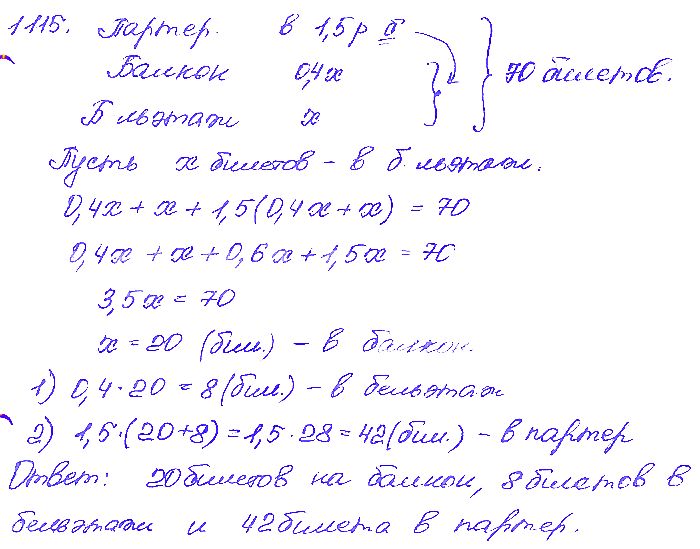 1115. Партер. в 1,5 р б } 70 билетов.
Балкон 0,4x
Бльэтаж x
Пусть x билетов - в б. льэтаж.
0,4x + x + 1,5(0,4x + x) = 70
0,4x + x + 0,6x + 1,5x = 70
3,5x = 70
x = 20 (бил.) - в балкон.
1) 0,4 · 20 = 8 (бил.) - в бельэтаж
2) 1,5 · (20 + 8) = 1,5 · 28 = 42 (бил.) - в партер
Ответ: 20 билетов на балкон, 8 билетов в
бельэтаж и 42 билета в партер.